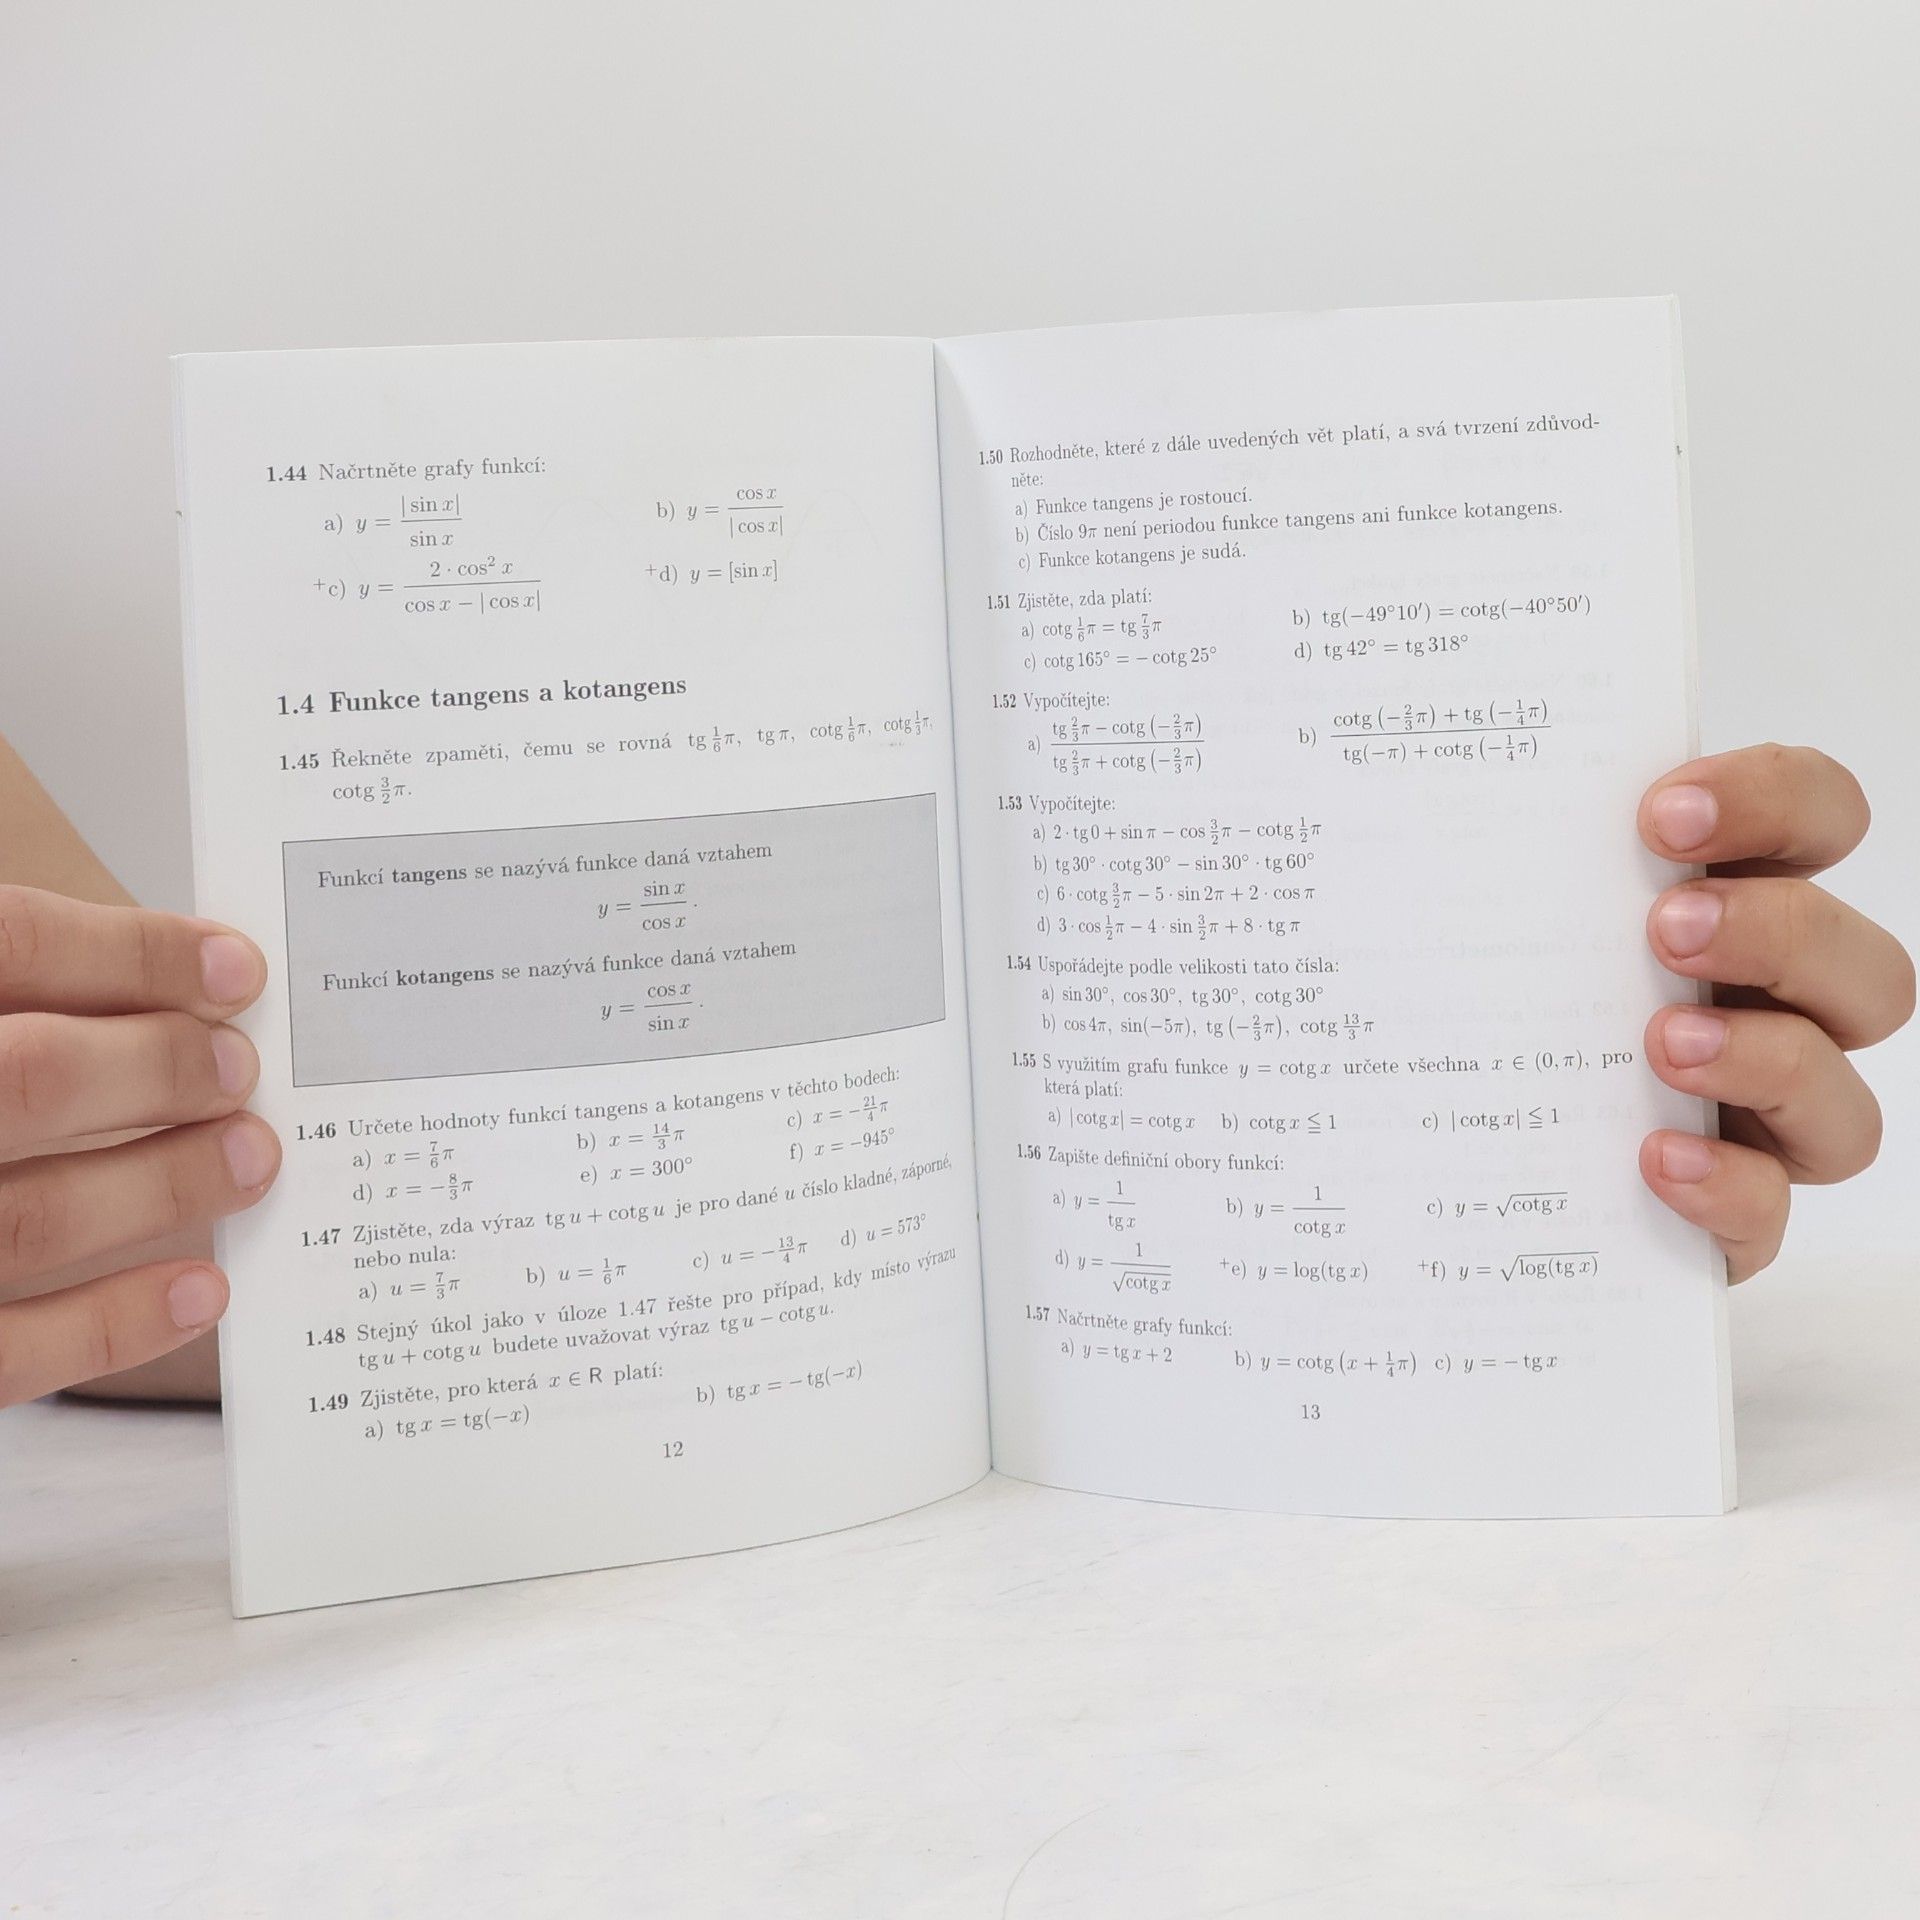 1.44 Načrtněte grafy funkcí:
a) y = |sin x| / sin x
b) y = cos x / |cos x|
+c) y = 2 · cos² x / (cos x − |cos x|)
+d) y = [sin x]
1.4 Funkce tangens a kotangens
1.45 Řekněte zpaměti, čemu se rovná tg 1/6 π, tg π, cotg 1/6 π, cotg 1/3 π,
cotg 3/2 π.
Funkcí tangens se nazývá funkce daná vztahem
y = sin x / cos x .
Funkcí kotangens se nazývá funkce daná vztahem
y = cos x / sin x .
1.46 Určete hodnoty funkcí tangens a kotangens v těchto bodech:
a) x = 7/6 π b) x = 14/3 π c) x = −21/4 π
d) x = −8/3 π e) x = 300° f) x = −945°
1.47 Zjistěte, zda výraz tg u + cotg u je pro dané u číslo kladné, záporné,
nebo nula:
a) u = 7/3 π b) u = 1/6 π c) u = −13/4 π d) u = 573°
1.48 Stejný úkol jako v úloze 1.47 řešte pro případ, kdy místo výrazu
tg u + cotg u budete uvažovat výraz tg u − cotg u.
1.49 Zjistěte, pro která x ∈ R platí:
a) tg x = tg(−x) b) tg x = − tg(−x)
12
1.50 Rozhodněte, které z dále uvedených vět platí, a svá tvrzení zdůvod-
něte:
a) Funkce tangens je rostoucí.
b) Číslo 9π není periodou funkce tangens ani funkce kotangens.
c) Funkce kotangens je sudá.
1.51 Zjistěte, zda platí:
a) cotg 1/6 π = tg 7/3 π b) tg(−49°10′) = cotg(−40°50′)
c) cotg 165° = − cotg 25° d) tg 42° = tg 318°
1.52 Vypočítejte:
a) (tg 2/3 π − cotg (−2/3 π)) / (tg 2/3 π + cotg (−2/3 π))
b) (cotg (−2/3 π) + tg (−1/4 π)) / (tg(−π) + cotg (−1/4 π))
1.53 Vypočítejte:
a) 2 · tg 0 + sin π − cos 3/2 π − cotg 1/2 π
b) tg 30° · cotg 30° − sin 30° · tg 60°
c) 6 · cotg 3/2 π − 5 · sin 2π + 2 · cos π
d) 3 · cos 1/2 π − 4 · sin 3/2 π + 8 · tg π
1.54 Uspořádejte podle velikosti tato čísla:
a) sin 30°, cos 30°, tg 30°, cotg 30°
b) cos 4π, sin(−5π), tg (−2/3 π), cotg 13/3 π
1.55 S využitím grafu funkce y = cotg x určete všechna x ∈ (0, π), pro
která platí:
a) |cotg x| = cotg x b) cotg x ≦ 1 c) |cotg x| ≦ 1
1.56 Zapište definiční obory funkcí:
a) y = 1 / tg x b) y = 1 / cotg x c) y = √(cotg x)
d) y = 1 / √(cotg x) +e) y = log(tg x) +f) y = √(log(tg x))
1.57 Načrtněte grafy funkcí:
a) y = tg x + 2 b) y = cotg (x + 1/4 π) c) y = − tg x
13